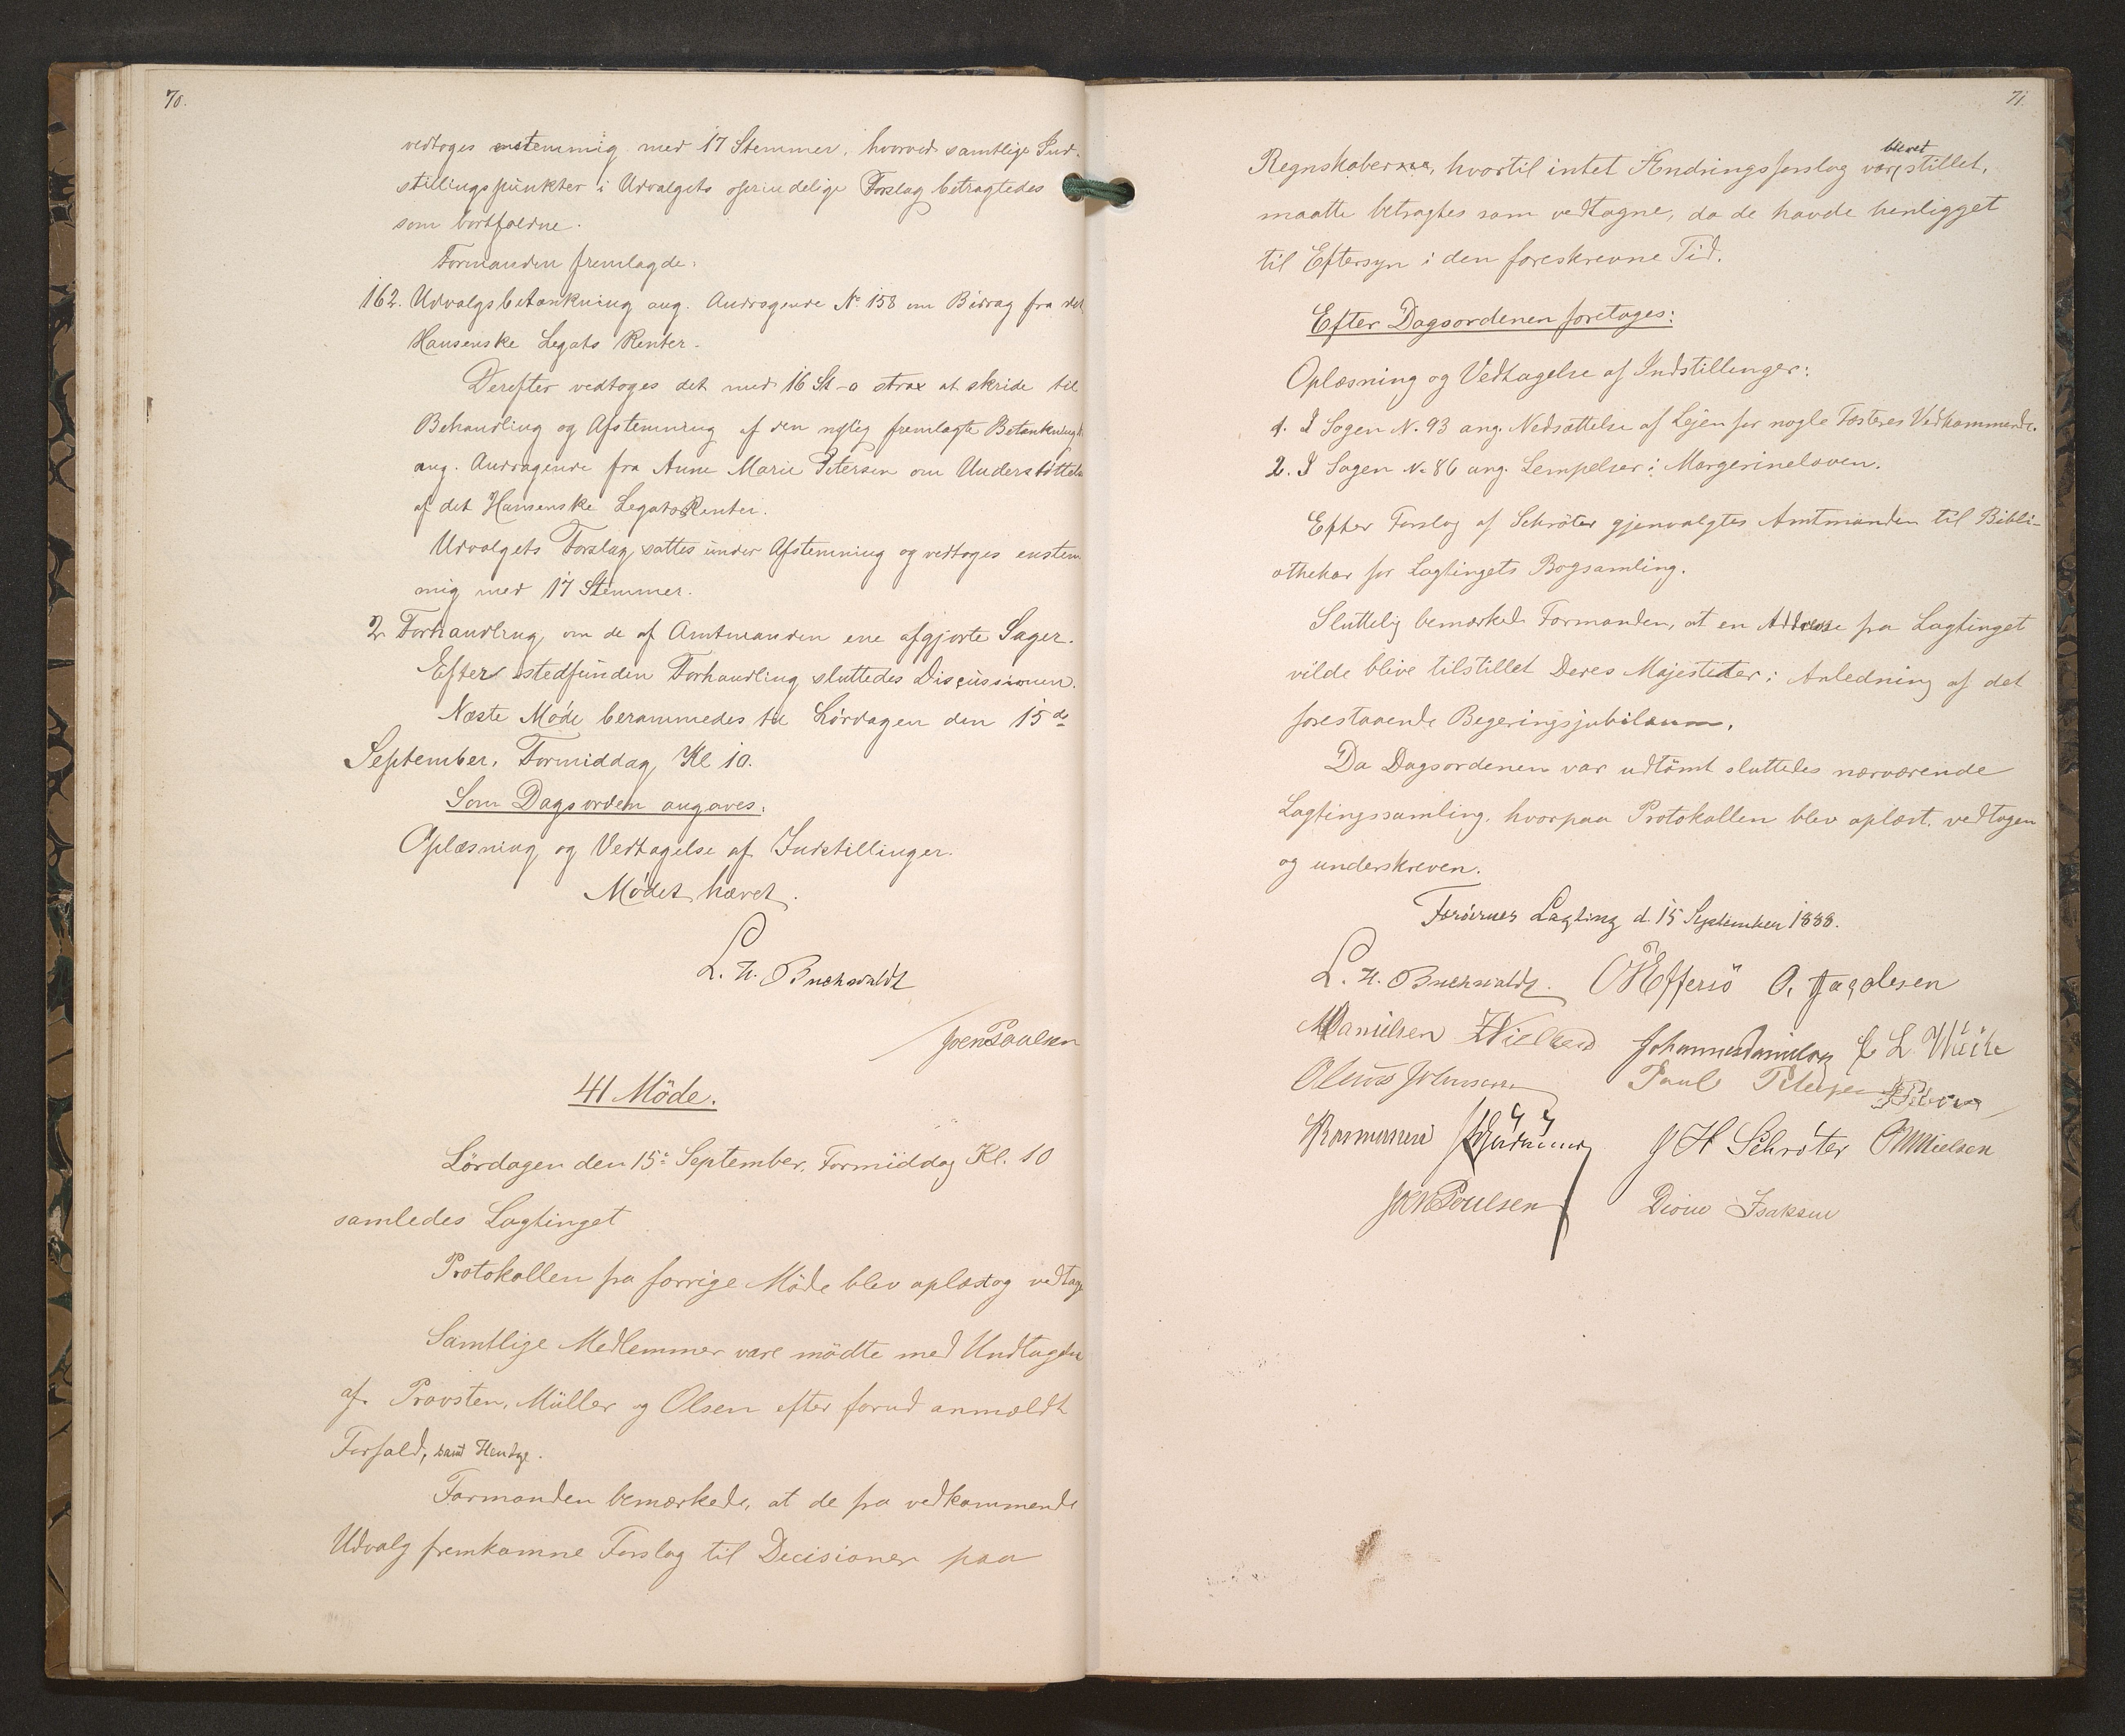 70.
vedtoges enstemmig med 17 Stemmer, hvorved samtlige Ind-
stillingspunkter i Udvalgets oprindelige Forslag betragtedes
som bortfaldne.
Formanden fremlagde:
162. Udvalgsbetænkning ang. Andragende No 158 om Bidrag fra det
Hansenske Legats Renter.
Derefter vedtoges det med 16 St-0 strax at skride til
Behandling og Afstemning af den nylig fremlagte Betænkning
ang. Andragende fra Anne Marie Petersen om Understøttelse
af det Hansenske Legats Renter.
Udvalgets Forslag sattes under Afstemning og vedtoges enstem
mig med 17 Stemmer.
2. Forhandling om de af Amtmanden ene afgjorte Sager.
Efter stedfunden Forhandling sluttedes Discussionen.
Næste Møde berammedes til Lørdagen den 15de
September, Formiddag Kl 10.
Som Dagsorden angaves:
Oplæsning og Vedtagelse af Indstillinger.
Mödet hævet.
L. H. Buchwaldt
Joen Poulsen
41 Möde.
Lördagen den 15de September, Formiddag Kl. 10
samledes Lagtinget
Protokollen fra forrige Möde blev oplæst og vedtage
Samtlige Medlemmer vare mödte med Undtagelse
af Provsten, Müller og Olsen efter forud anmeldt
Forfald, samt Hendge.
Formanden bemærkede, at de fra vedkommende
Udvalg fremkomne Forslag til Decisioner paa
71.
Regnskaberne, hvortil intet Ændringsforslag var blevet stillet,
maatte betragtes som vedtagne, da de havde henligget
til Eftersyn i den foreskrevne Tid.
Efter Dagsordenen foretoges:
Oplæsning og Vedtagelse af Indstillinger:
1. I Sagen N. 93 ang. Nedsættelse af Lejen for nogle Fæsteres Vedkommende.
2. I Sagen No 86 ang. Lempelser i Margerineloven.
Efter Forslag af Schröter gjenvalgtes Amtmanden til Bibli-
othekar for Lagtingets Bogsamling.
Sluttelig bemærkede Formanden, at en Addresse fra Lagtinget
vilde blive tilstillet Deres Majesteter i Anledning af det
forestaaende Regeringsjubilæum.
Da Dagsordenen var udtömt sluttedes nærværende
Lagtingssamling, hvorpaa Protokollen blev oplæst, vedtagen
og underskreven.
Færöernes Lagting d. 15 September 1888.
L. H. Buchwaldt. Effersö O.
MDanielsen Johannes Danielsen
Olaus Johnsen Paul Petersen
Rasmussen J H Schröter Nielsen
Joen Poulsen Isaksen